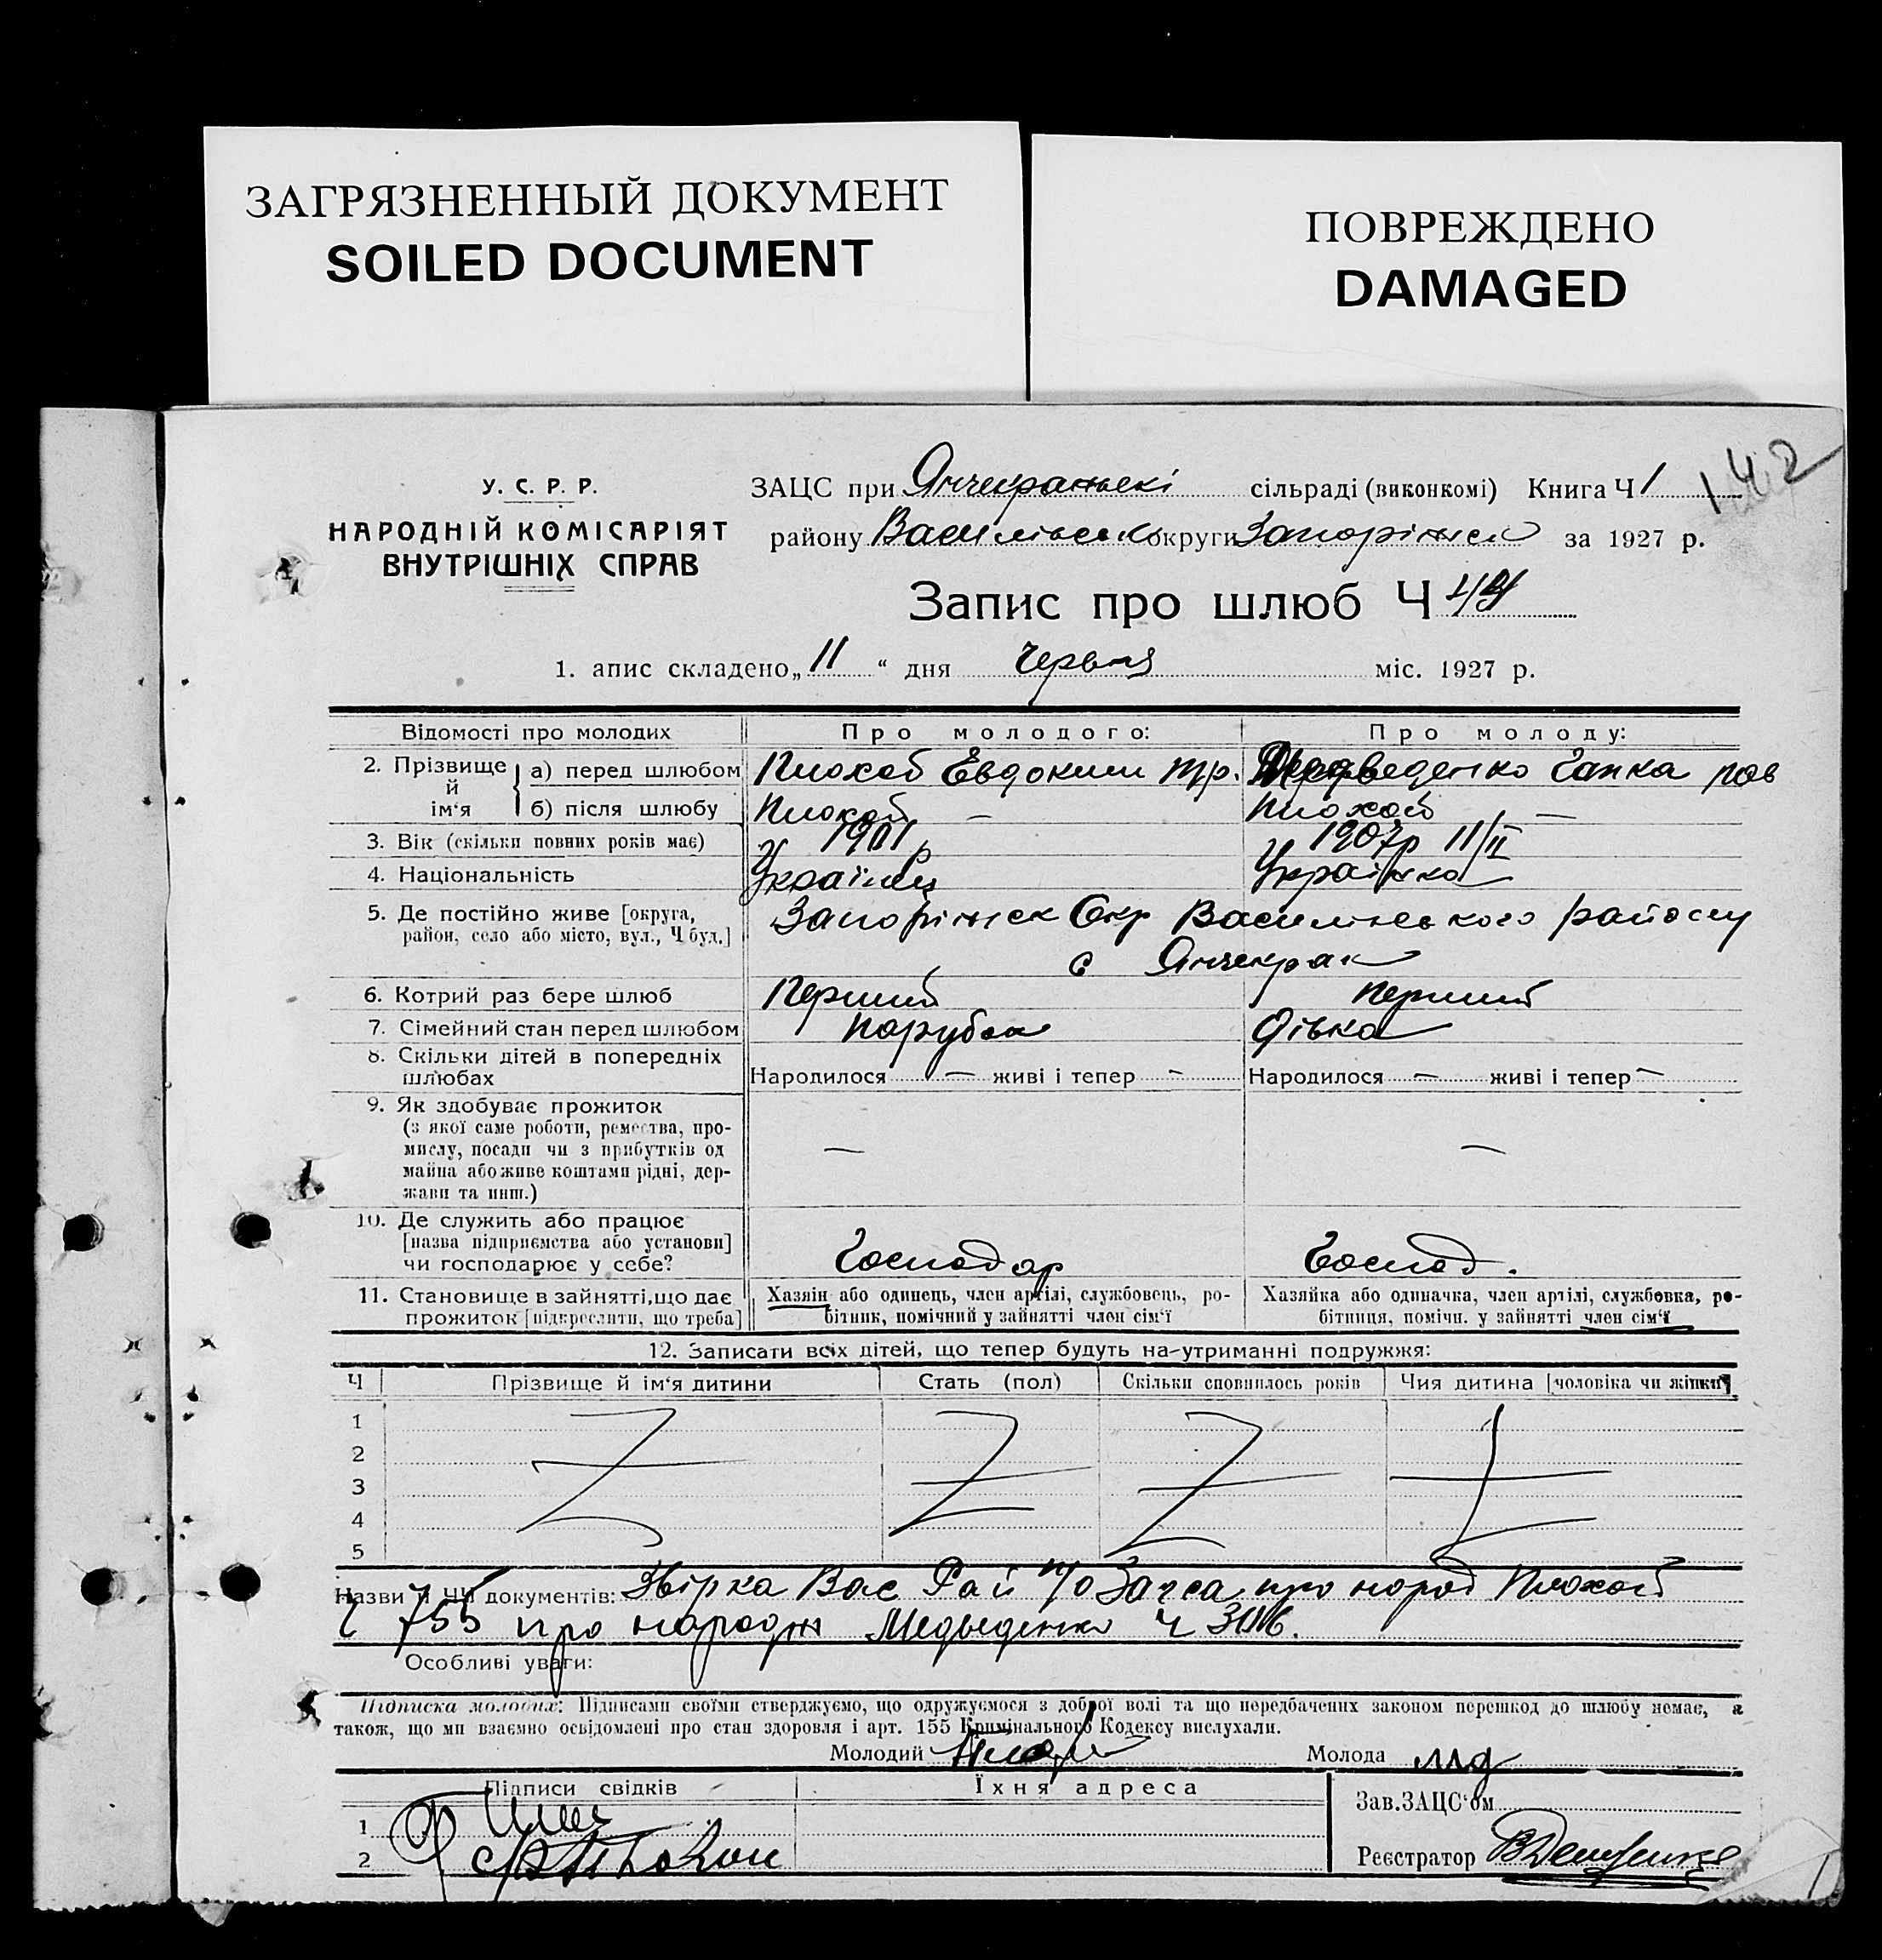 ЗАГРЯЗНЕННЫЙ ДОКУМЕНТ
SOILED DOCUMENT
ПОВРЕЖДЕНО
DAMAGED
142
У. С. Р. Р.
НАРОДНІЙ КОМІСАРІЯТ
ВНУТРІШНІХ СПРАВ
ЗАЦС при Янчекраньскі сільраді (виконкомі) Книга Ч 1
району Василівськ округи Запоріжск за 1927 р.
Запис про шлюб Ч
1. апис складено „ 11 “ дня червня міс. 1927 р.
Відомості про молодих Про молодого: Про молоду:
2. Прізвище й ім‘я
а) перед шлюбом Плохой Евдоким Тр. Медведенко Гапка
б) після шлюбу Плохой — Плохой —
3. Вік (скільки повних років має) 1901 р 1907р 11/II
4. Національність Українець Українка
5. Де постійно живе [округа, район, село або місто, вул., Ч буд.] Запоріжск Окр Василівського району
с Янчекрак
6. Котрий раз бере шлюб Перший перший
7. Сімейний стан перед шлюбом парубок дівка
8. Скільки дітей в попередніх шлюбах Народилося — живі і тепер — Народилося — живі і тепер —
9. Як здобуває прожиток
(з якої саме роботи, ремества, про-
мислу, посади чи з прибутків од
майна або живе коштами рідні, дер-
жави та инш.) — —
10. Де служить або працює
[назва підприємства або установи]
чи господарює у себе? Господар Господ.
11. Становище в зайнятті, що дає
прожиток [підкреслити, що треба]
Хазяін або одинець, член артілі, службовець, ро-
бітник, помічний у зайнятті член сім‘ї
Хазяйка або одиначка, член артілі, службовка, ро-
бітниця, помічн. у зайнятті член сім‘ї
12. Записати всіх дітей, що тепер будуть на-утриманні подружжя:
Ч Прізвище й ім‘я дитини Стать (пол) Скільки сповнилось років Чия дитина [чоловіка чи жінки]
1
2
3
4
5
Назви й ЧЧ документів: Звірка Вас Рай п/о Загса про народ Плохой
Ч 755 про народж Медведенко Ч
Особливі уваги:
Підписка молодих: Підписами своїми стверджуємо, що одружуємося з доброї волі та що передбачених законом перешкод до шлюбу немає, а
також, що ми взаємно освідомлені про стан здоровля і арт. 155 Кримінального Кодексу вислухали.
Молодий Молода
Підписи свідків Їхня адреса
1
2
Зав.ЗАЦС‘ом
Реєстратор